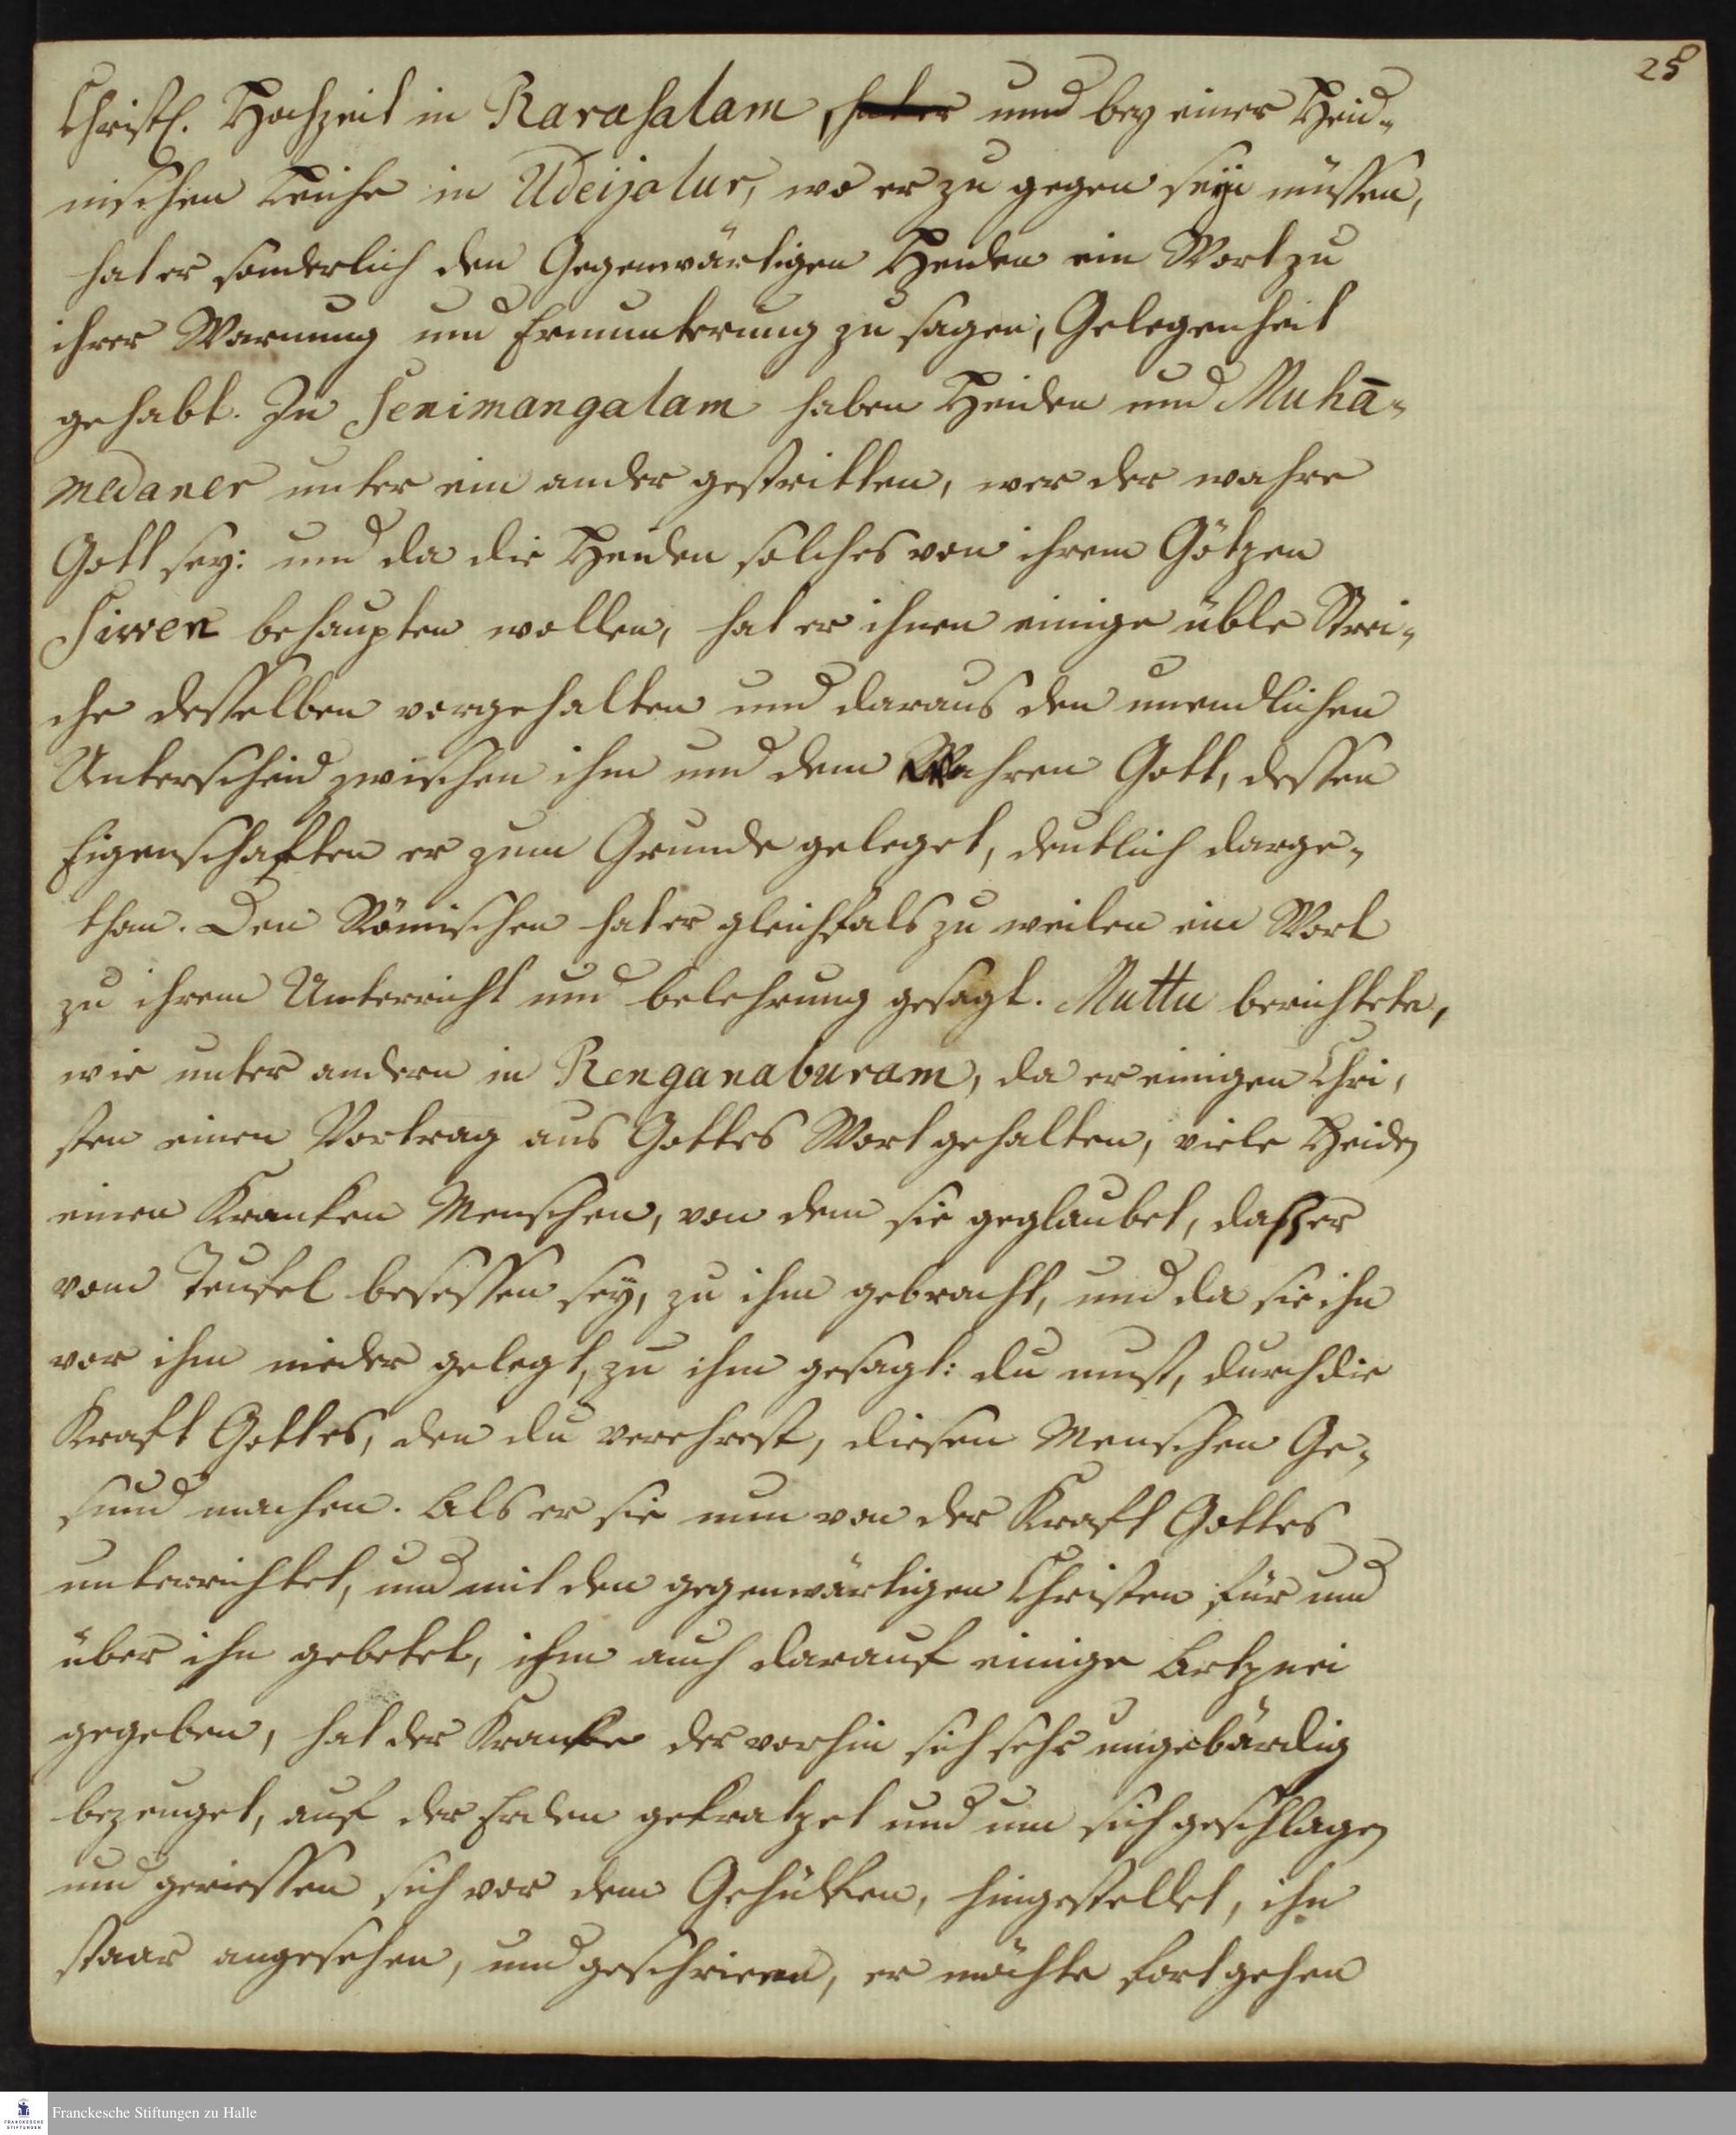 25
Christl. Hochzeit in Rarasalam, hat er und bey einer Heid-
nischen Leiche in Udeijalur, wo er zu gegen seyn müssen,
hat er sonderlich den Gegenwärtigen Heiden ein Wort zu
ihrer Warnung und Ermunterung zu sagen, Gelegenheit
gehabt. In Senimangalam haben Heiden und Muha̅-
medaner unter ein ander gestritten, wer der wahre
Gott sey: und da die Heiden solches von ihrem Götzen
Siwen behaupten wollen, hat er ihnen einige üble Strei-
che desselben vorgehalten und daraus den unendlichen
Unterscheid zwischen ihm und dem Wahren Gott, dessen
Eigenschaften er zum Grunde geleget, deutlich darge-
than. Den Römischen hat er gleichfals zu weilen ein Wort
zu ihrem Unterricht und belehrung gesagt. Muttu berichtete,
wie unter andern in Renganaburam, da er einigen Chri-
sten einen Vortrag aus Gottes Wort gehalten, viele Heiden
einen Kranken Menschen, von dem sie geglaubet, daß er
vom Teufel besessen sey, zu ihm gebracht, und da sie ihn
vor ihm nieder gelegt, zu ihm gesagt: du must, durch die
Kraft Gottes, den du verehrest, diesen Menschen Ge-
sund machen. Als er sie nun von der Kraft Gottes
unterrichtet, und mit den gegenwärtigen Christen für und
über ihn gebetet, ihm auch darauf einige Artznei
gegeben, hat der Kranke der vorhin sich sehr ungebärdig
bezeuget, auf der Erden gekratzet und um sich geschlagen
und gerissen sich vor dem Gehülfen, hingestellet, ihn
staar angesehen, und geschrieen, er möchte fort gehen
FRANCKESCHE STIFTUNGEN
Franckesche Stiftungen zu Halle